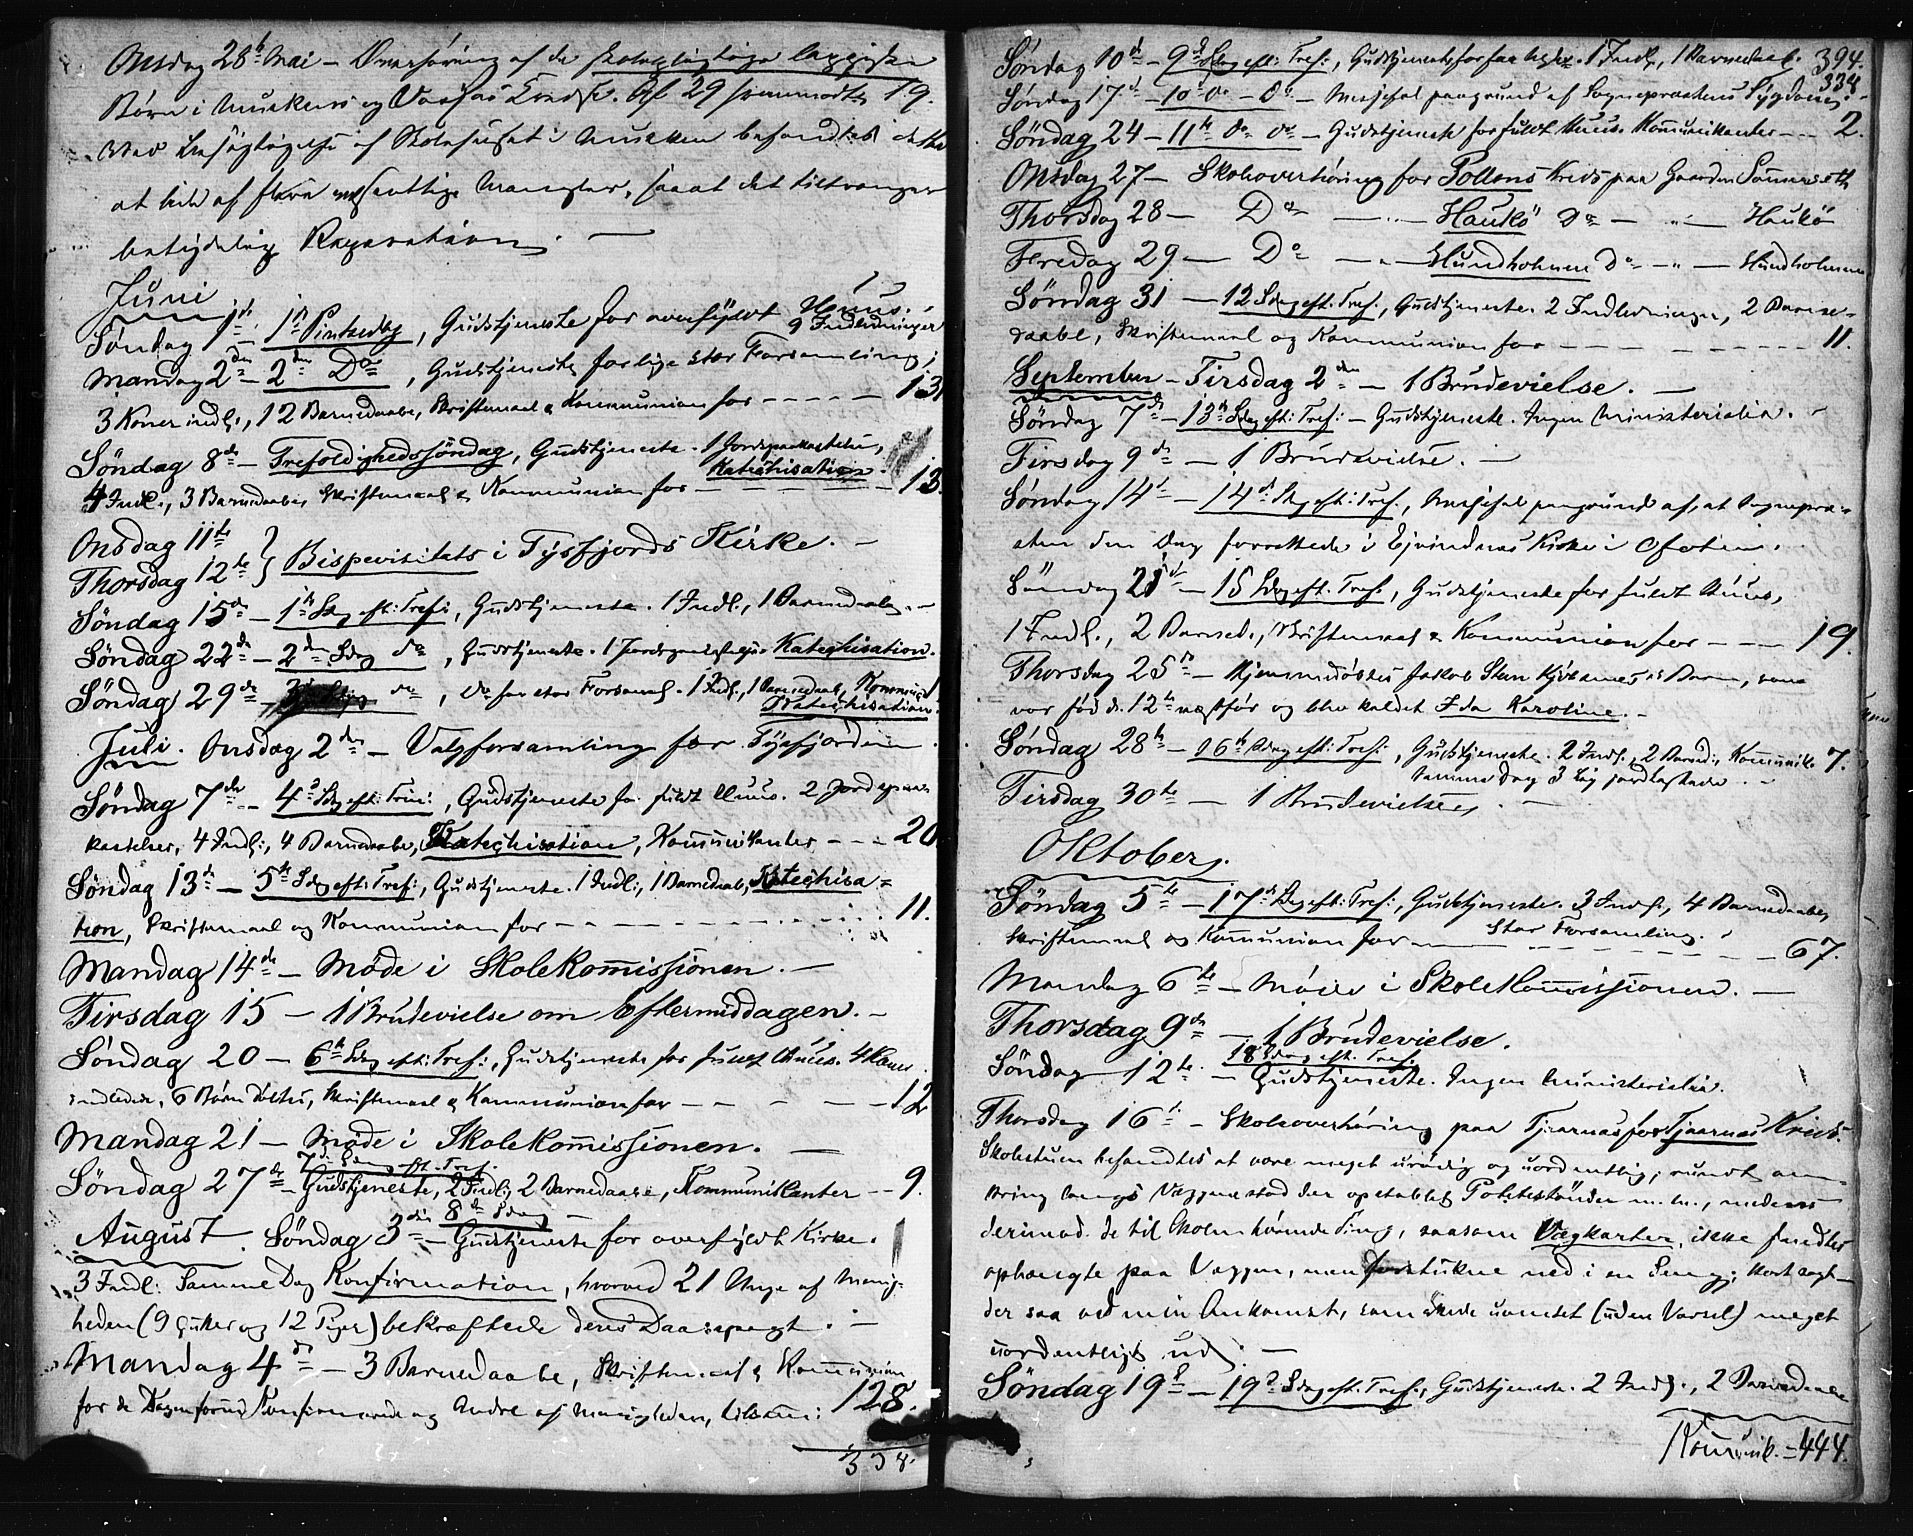 Onsdag 28de Mai – Overhøring af de skolepligtige lappiske
Børn i Muskens og Kreds. Af 29 fremmødte 19.
Ved Besigtigelse af Skolehuset i Musken befandtes dette
at lide af flere væsentlige Mangler, saaat det tiltrænger
betydelig Reparation. —
Juni
Søndag 1ste 1ste Pintsedag, Gudstjeneste for overfyldt Huus. 9 Indledninger
Mandag 2den – 2den Do, Gudstjeneste for lige stor Forsamling;
3 Koner indl., 12 Barnedaabe, Skriftemaal & Kommunion for – – – – 13
Søndag 8de – Trefoldighedssöndag, Gudstjeneste. 1 Jordpaakastelse, Katechisation.
4 Indl., 3 Barnedaabe, Skriftemaal & Kommunion for – – – – 13.
Onsdag 11te
Thorsdag 12te } Bispevisitats i Tysfjords Kirke. –
Søndag 15de – 1ste Sdag eft: Tref:, Gudstjeneste. 1 Indl., 1 Barnedaab. –
Søndag 22de – 2den Sdag do, Gudstjeneste. 1 Jordpaakastelse Katechisation.
Søndag 29de – do, do for stor Forsaml. 1 Indl., 1 Barnedaab, Kommun. 1
Katechisation.
Juli. Onsdag 2den – Valgforsamling for Tysfjorden.
Søndag 7de – 4de Sdag eft: Tref:, Gudstjeneste for fuldt Huus. 2 Jordspaa-
kastelser, 4 Indl:, 4 Barnedaabe, Katechisation, Kommunikanter – – – 20
Søndag 13de – 5te Sdag eft: Tref:, Gudstjeneste. 1 Indl:, 1 Barnedaab, Katechisa=
tion, Skriftemaal og Kommunion for – – – – – 11.
Mandag 14de – Møde i Skolekommissionen. –
Tirsdag 15 – 1 Brudevielse om Eftermiddagen. –
Søndag 20 – 6te Sdag eft: Tref:, Gudstjeneste for fuldt Huus. 4 Koner
indledede, 6 Børn døbtes, Skriftemaal & Kommunion for – – – – 12
Mandag 21 – Møde i Skolekommissionen. —
7de Sdag eft. Tref.
Søndag 27de – Gudstjeneste, 2 Indl., 2 Barnedaabe, Kommunikanter – – 9.
8de Sdag
August. Söndag 3die – Gudstjeneste for overfyldt Kirke.
3 Indl: Samme Dag Konfirmation, hvorved 21 Unge af Menig-
heden (9 Gutter og 12 Piger) bekræftede deres Daabspagt. –
Mandag 4de – 3 Barnedaabe, Skriftemaal & Kommunion
for de Dagen forud Konfirmerede og Andre af Menigheden, tilsam: 128.
338.
394.
338
Söndag 10de – 9de Sdag eft: Tref:, Gudstjeneste for faa 1 Indl., 1 Barnedaab.
Søndag 17de – 10de Do – Do – Messefal paagrund af Sognepræstens Sygdom.
Söndag 24 – 11te do do – Gudstjeneste for fuldt Huus. Kommunikanter – – – 2.
Onsdag 27 – Skoleoverhöring for Pollens Kreds paa Gaarden
Thorsdag 28 – Do – Haukö Do – – Haukö
Fredag 29 – Do – Hundholmens Do – – Hundholmen
Söndag 31 – 12 Sdag eft: Tref:, Gudstjeneste. 2 Indledninger, 2 Barne-
daabe, Skriftemaal og Kommunion for – – – – – – – 11.
September – Tirsdag 2den – 1 Brudevielse. –
Søndag 7de – 13de Sdag eft: Tref: – Gudstjeneste. Ingen Ministerialia. –
Tirsdag 9de – 1 Brudevielse. –
Søndag 14de – 14de Sdag eft: Tref:, Messefal paagrund af, at Sognepræ-
sten den Dag forrettede i Ejvindnæs Kirke i Ofoten.
Søndag 21de – 15 Sdag eft: Tref:, Gudstjeneste for fuldt Huus,
1 Indl., 2 Barned., Skriftemaal & Kommunion for – – – 19.
Thorsdag 25de – Hjemmedöbtes Jakob Barn, som
var föd d. 12te næstfør og blev kaldet Ida Karoline. –
Søndag 28de – 16de Sdag eft: Tref:, Gudstjeneste. 2 Indl., 2 Barned:, Kommunik. 7.
samme Dag 3 Lig jordfæstede. –
Tirsdag 30te – 1 Brudevielse. –
Oktober.
Søndag 5te – 17de Sdag eft: Tref:, Gudstjeneste. 3 Indl., 4 Barnedaabe,
Stor Forsamling.
Skriftemaal og Kommunion for – – – – – 67.
Mandag 6te – Møde i Skolekommissionen. –
Thorsdag 9de – 1 Brudevielse.
18 Sdag eft. Tref.
Söndag 12te – Gudstjeneste. Ingen Ministerialia.
Thorsdag 16de – Skoleoverhöring paa Tjaarnæs for Tjaarnæs Kreds.
Skolestuen befandtes at være meget urenlig og uordentlig; rundt om-
kring langs Væggene stod der opstablet Potetestönder m. m., medens
derimod de til Skolen hørende Ting, saasom Vægkarter, ikke fandtes
ophængte paa Væggen, men forstukne ned i en Seng; kort sagt –
der saa ved min Ankomst, som skede uventet (uden Varsel) meget
uordentligt ud. –
Søndag 19de – 19de Sdag eft: Tref:, Gudstjeneste. 2 Indl., 2 Barnedaabe
Kommunik. – 444.